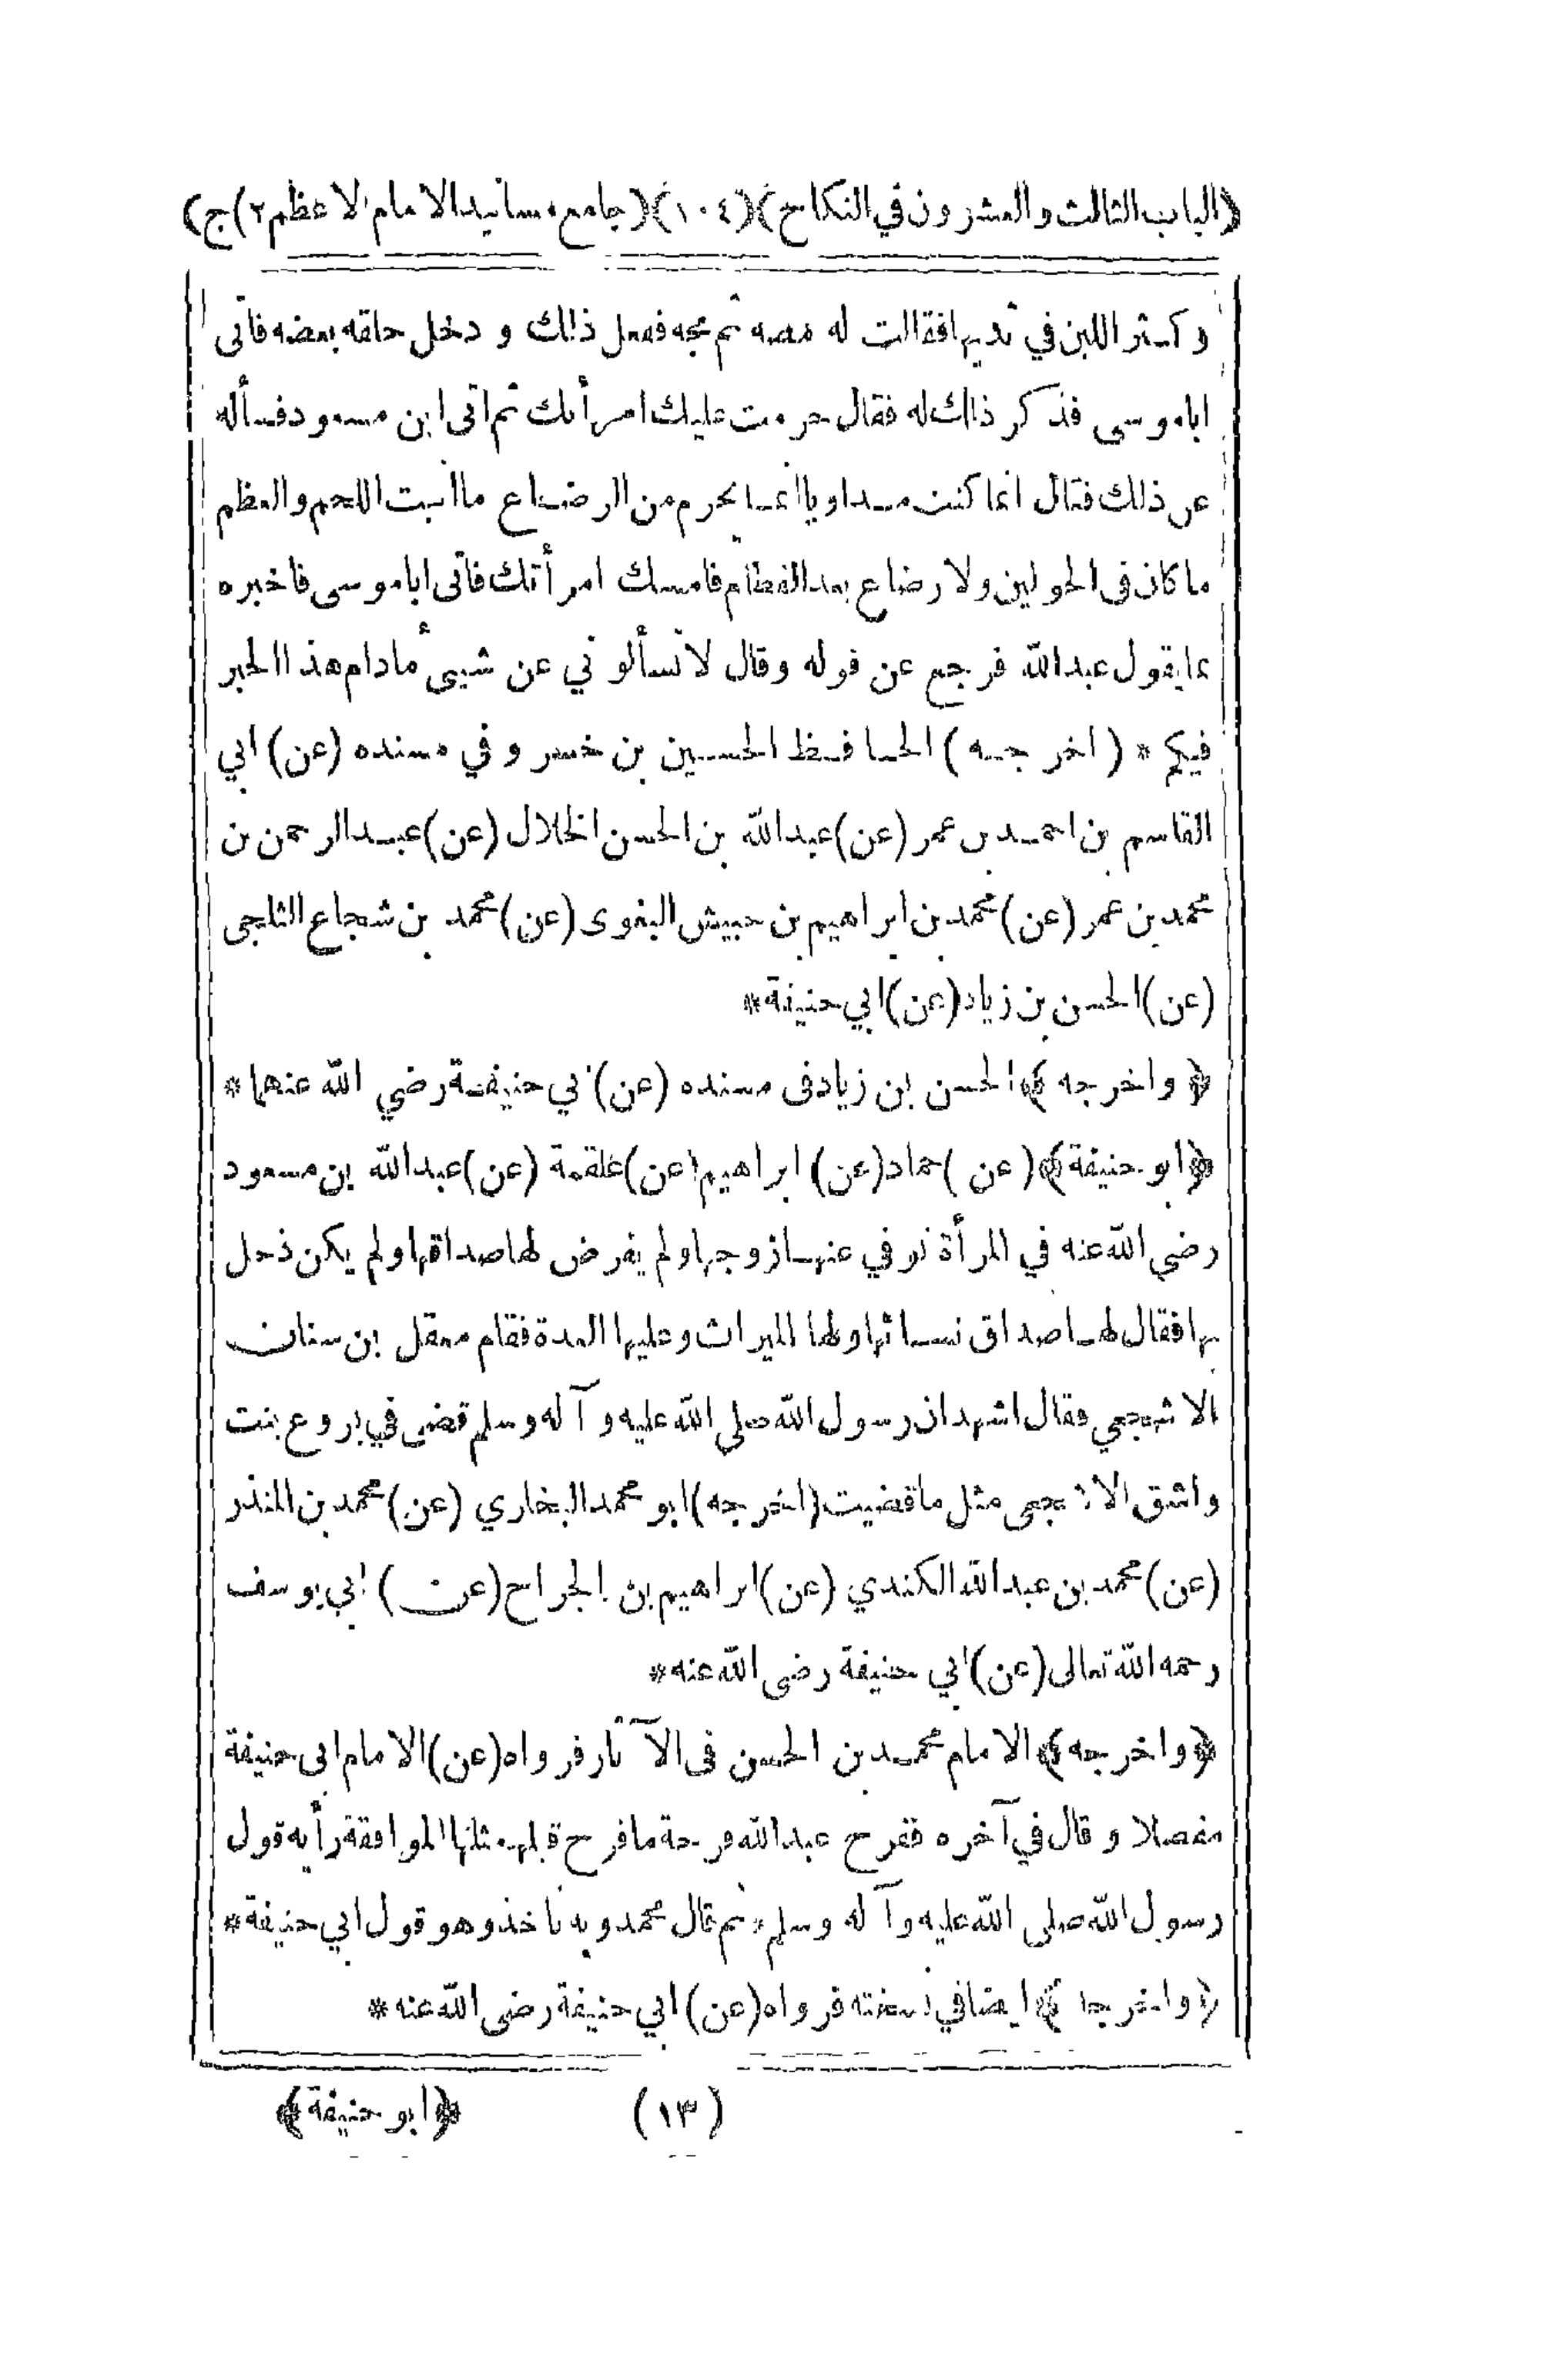 (الباب الثالث والعشرون في النكاح) (١٠٤) (جامع مسانيد الامام الاعظم ٢) ج)
وكثر اللبن في ثديها فقالت له مصه ثم مجه ففعل ذلك و دخل حلقه بعضه فأتى
اباموسى فذكر ذلك له فقال حرمت عليك امرأتك ثم اتى ابن مسعود فسأله
عن ذلك فقال انما كنت مداويا انما يحرم من الرضاع ما انبت اللحم والعظم
ما كان فى الحولين ولا رضاع بعد الفطام فامسك امرأتك فاتى اباموسى فاخبره
بما يقول عبدالله فرجع عن قوله وقال لا تسألوني عن شيىء مادام هذا الحبر
فيكم * ( اخرجه ) الحافظ الحسين بن خسرو في مسنده (عن) ابي
القاسم بن احمد بن عمر (عن) عبدالله بن الحسن الخلال (عن) عبدالرحمن بن
محمد بن عمر (عن) محمد بن ابراهيم بن حبيش البغوى (عن) محمد بن شجاع الثلجى
(عن) الحسن بن زياد (عن) ابي حنيفة *
﴿ واخرجه ﴾ الحسن بن زياد فى مسنده (عن) ابي حنيفة رضي الله عنهما *
﴿ ابو حنيفة ﴾ ( عن ) حماد (عن) ابراهيم (عن) علقمة (عن) عبدالله بن مسعود
رضى الله عنه في المرأة توفي عنها زوجها ولم يفرض لها صداقها ولم يكن دخل
بها فقال لها صداق نسائها ولها الميراث وعليها العدة فقام معقل بن سنان
الاشجعي فقال اشهد ان رسول الله صلى الله عليه وآله وسلم قضى في بروع بنت
واشق الاشجعى مثل ما قضيت (اخرجه) ابو محمد البخاري (عن) محمد بن المنذر
(عن) محمد بن عبدالله الكندي (عن) ابراهيم بن الجراح (عن) ابي يوسف
رحمه الله تعالى (عن) ابي حنيفة رضى الله عنه *
﴿ واخرجه ﴾ الامام محمد بن الحسن فى الآثار فرواه (عن) الامام ابى حنيفة
مفصلا و قال في آخره ففرح عبدالله فرحة مافرح قبلها مثلها لموافقة رأيه قول
رسول الله صلى الله عليه وآله وسلم * ثم قال محمد وبه ناخذ وهو قول ابي حنيفة *
﴿ واخرجه ﴾ ايضا في نسخته فرواه (عن) ابي حنيفة رضى الله عنه *
(١٣) ﴿ ابو حنيفة ﴾